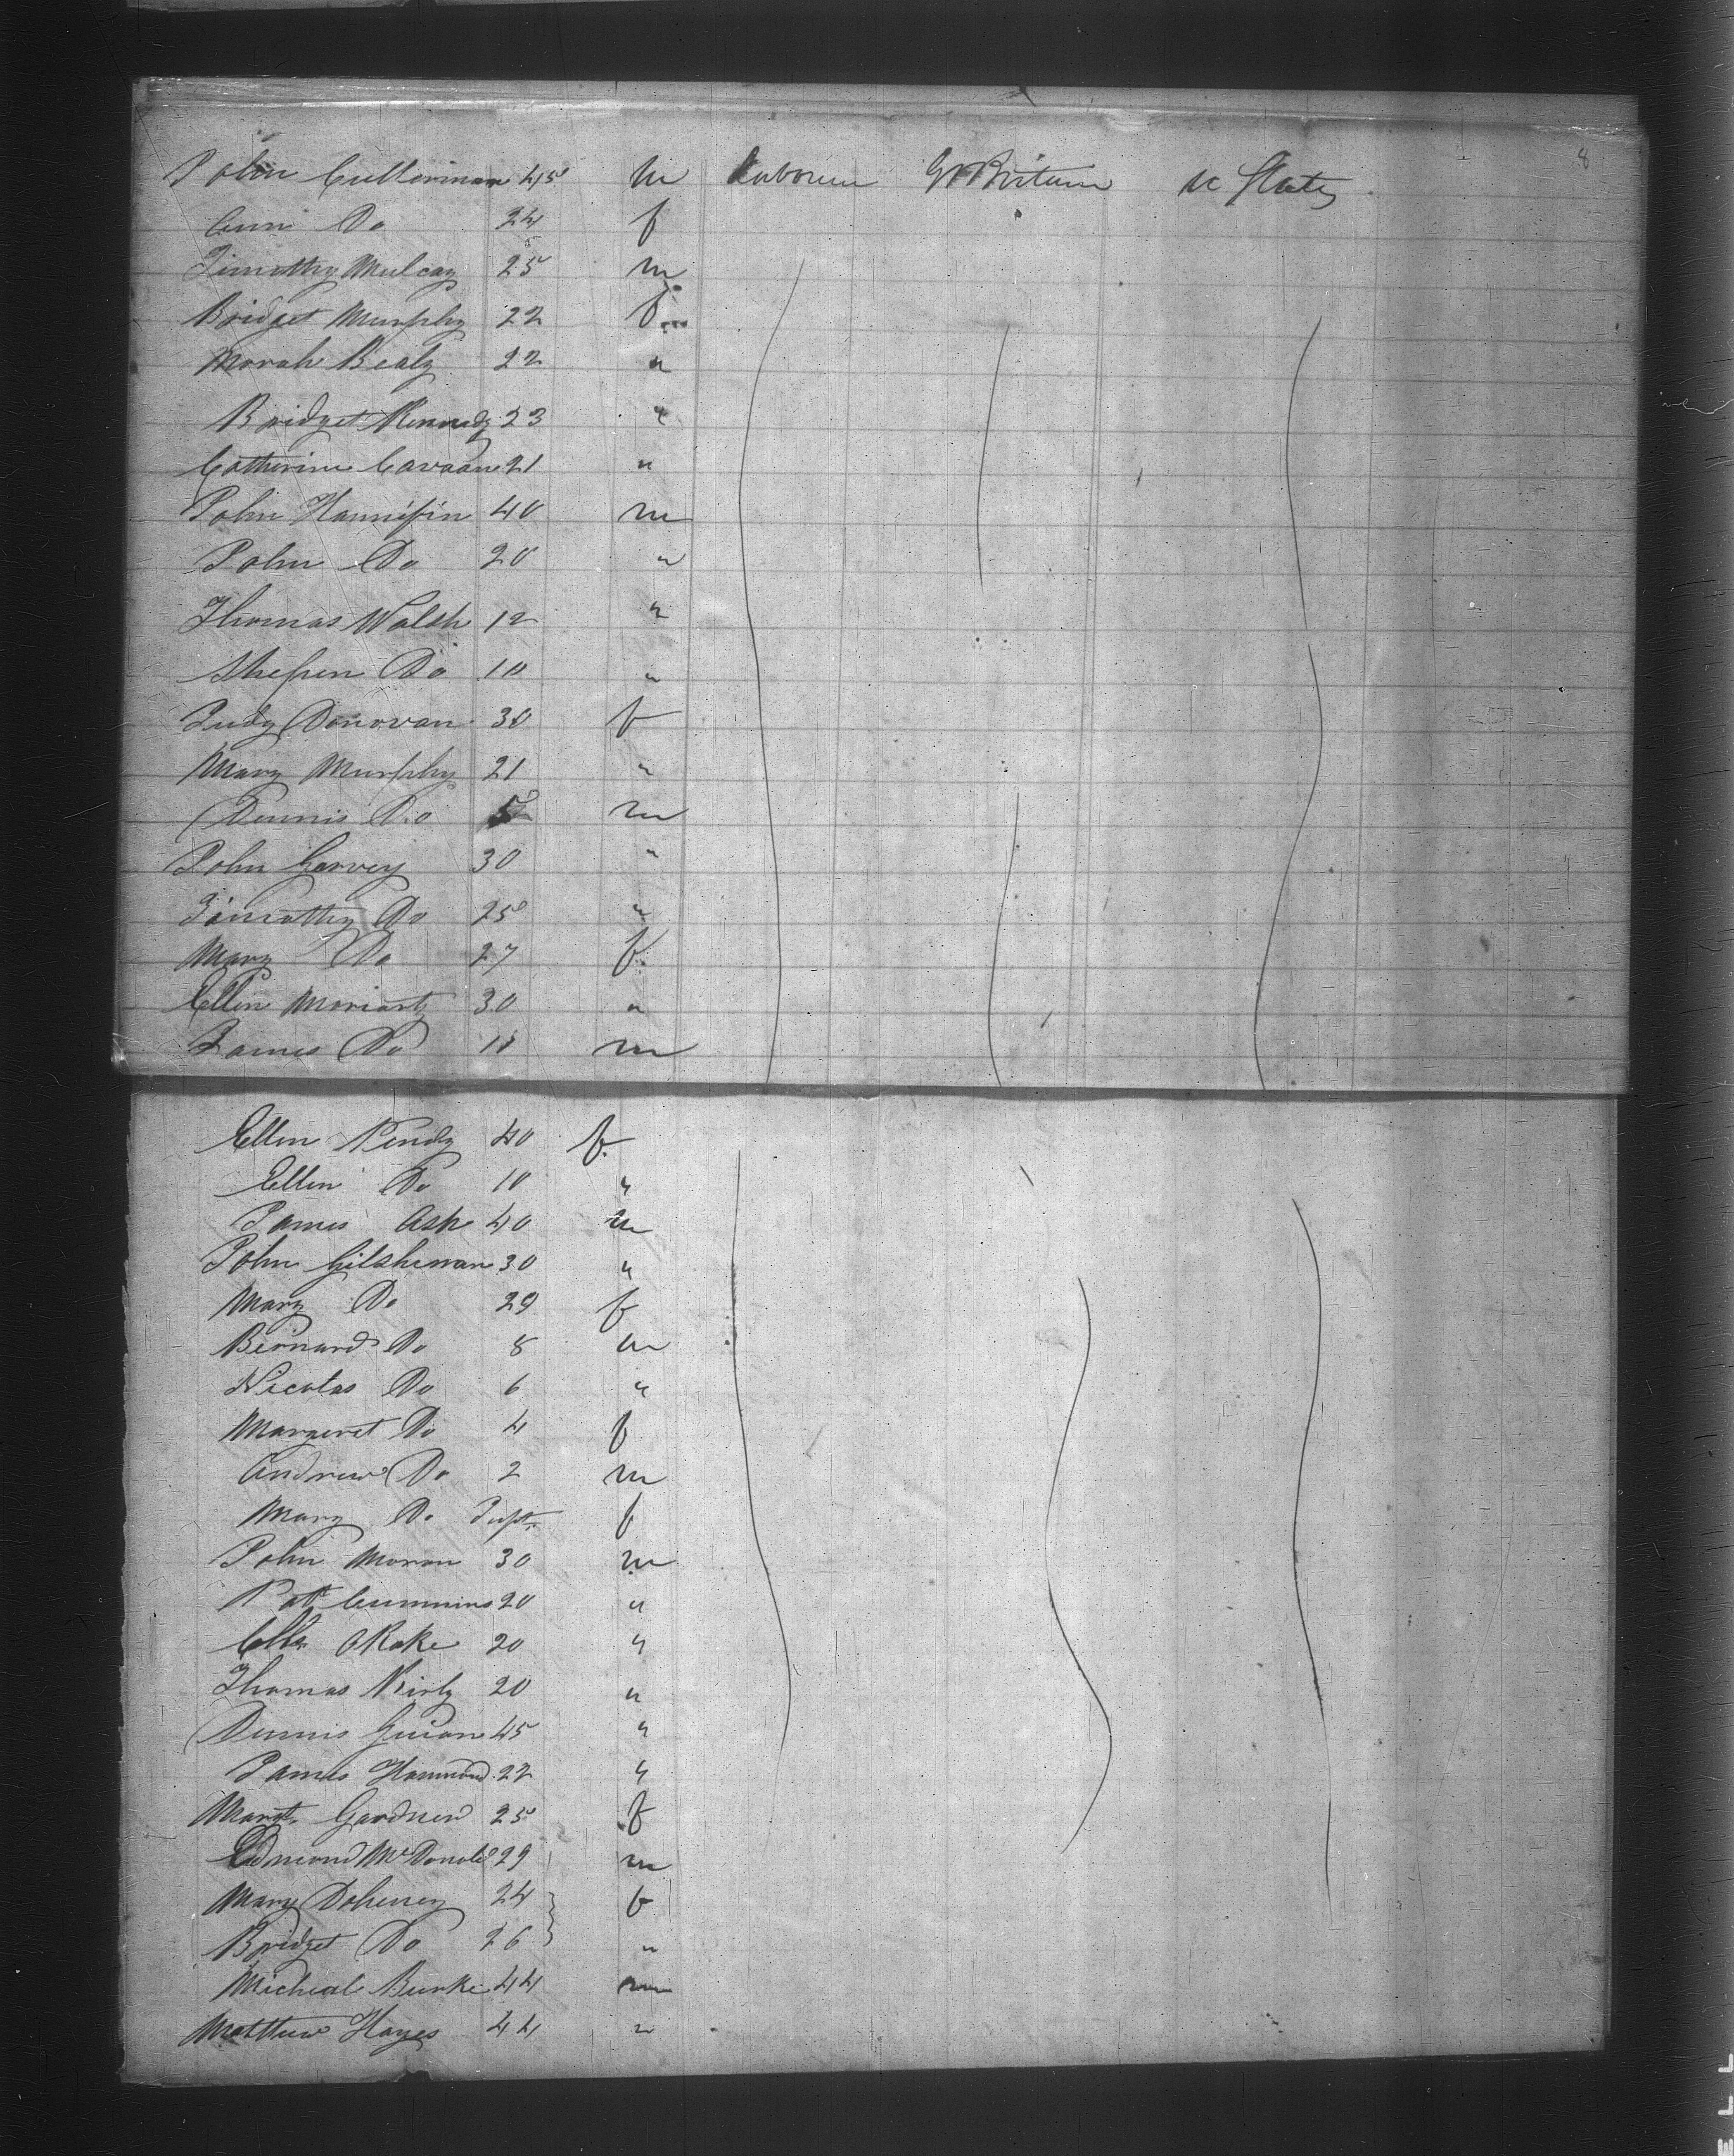 8
John Cullerinan 45 m Labourer Gt Britain U States
Ann Do 24 f
Timothy Mulcay 25 m
Bridget Murphy 22 f
Morah Bealy 22 "
Bridget Kennedy 23 "
Catherine Cavaan 21 "
John Hannifin 40 m
John Do 20 "
Thomas Walsh 12 "
Shepen Do 10 "
Judy Donovan 30 f
Mary Murphy 21 "
Dennis Do 5 m
John Garvey 30 "
Timothy Do 25 "
Mary Do 27 f
Ellen Moriarty 30 "
James Do 11 m
Ellen Kendy 40 f
Ellen Do 10 "
James Ash 40 m
John Gilshenan 30 "
Mary Do 29 f
Bernard Do 8 m
Nicolas Do 6 "
Margeret Do 4 f
Andrew Do 2 m
Mary Do Inft f
John Moran 30 m
Pat Cummins 20 "
ORoke 20 "
Thomas Kirly 20 "
Dennis Guion 45 "
James Hammond 22 "
Margt Gardner 25 f
Edmond McDonald 29 m
Mary Doheney 24 f
Bridget Do 26 "
Micheal Burke 44 m
Matthew Hayes 44 "